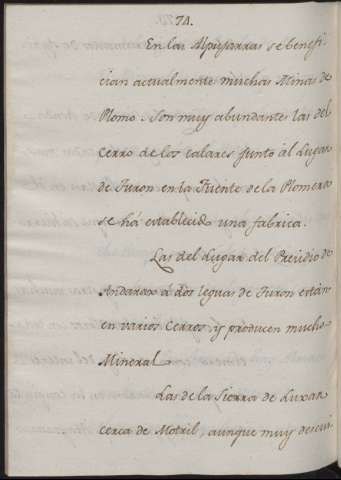 74.
En las Alpujarras se benefi-
cian actualmente muchas Minas de
Plomo. Son muy abundantes las del
cerro de los calares junto al Lugar
de Turon en la Fuente de la Plomera
se há establecido una fabrica.
Las del Lugar del Presidio de
Andarax á dos leguas de Turon están
en varios Cerros, y producen mucho
Mineral.
Las de la Sierra de Luxar
cerca de Motril, aunque muy descui-